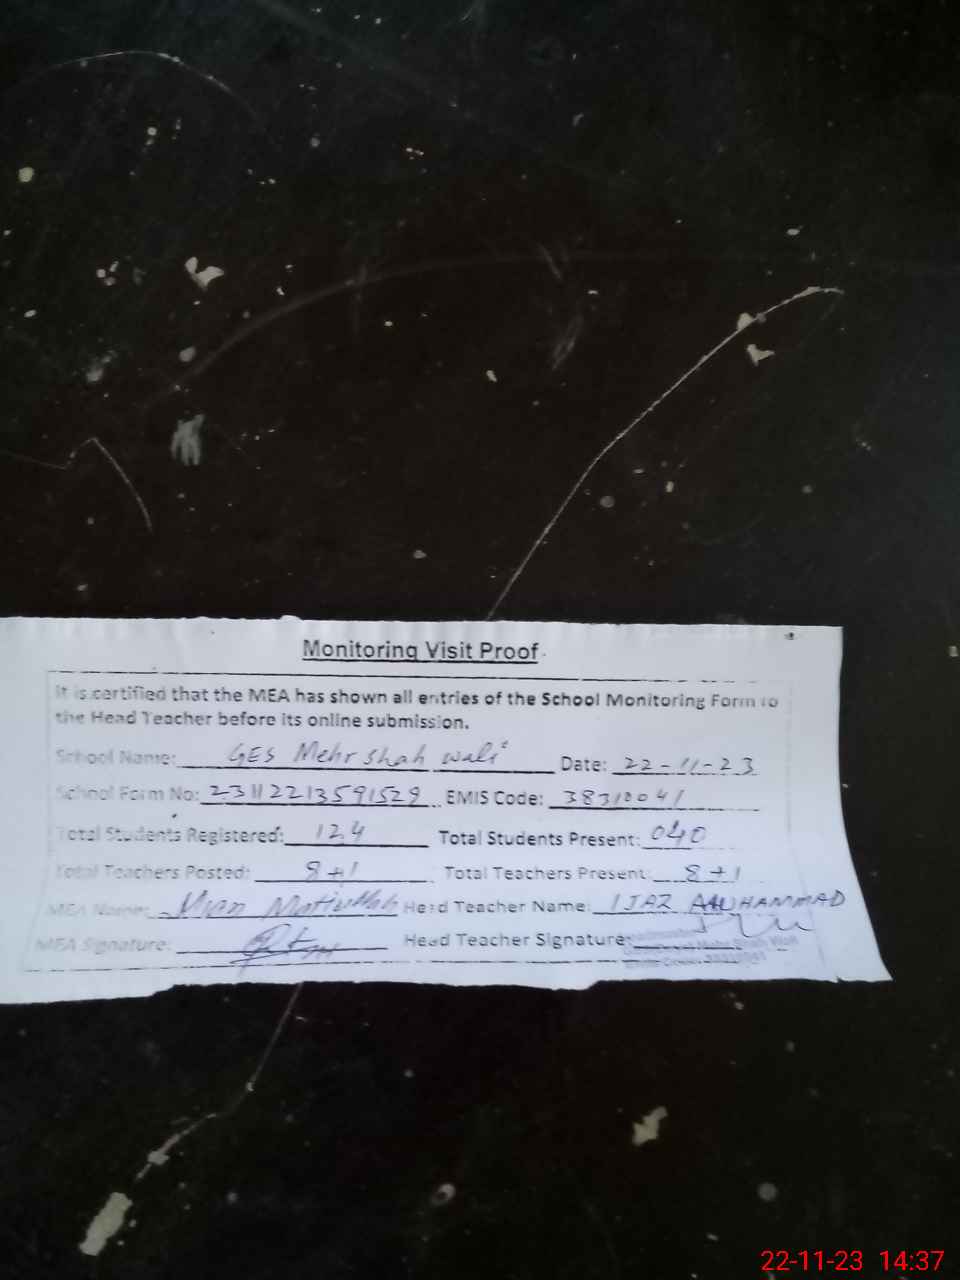 Monitoring Visit Proof
It is certified that the MEA has shown all entries of the School Monitoring Form to
the Head Teacher before its online submission.
School Name: GES Mehr shah wali Date: 22-11-23
School Form No: 23112213591529 EMIS Code: 38310041
Total Students Registered: 124 Total Students Present: 040
Total Teachers Posted: 8+1 Total Teachers Present: 8+1
MEA Name: Mian Matiullah Head Teacher Name: IJAZ MUHAMMAD
MEA Signature: Head Teacher Signature:
22-11-23 14:37